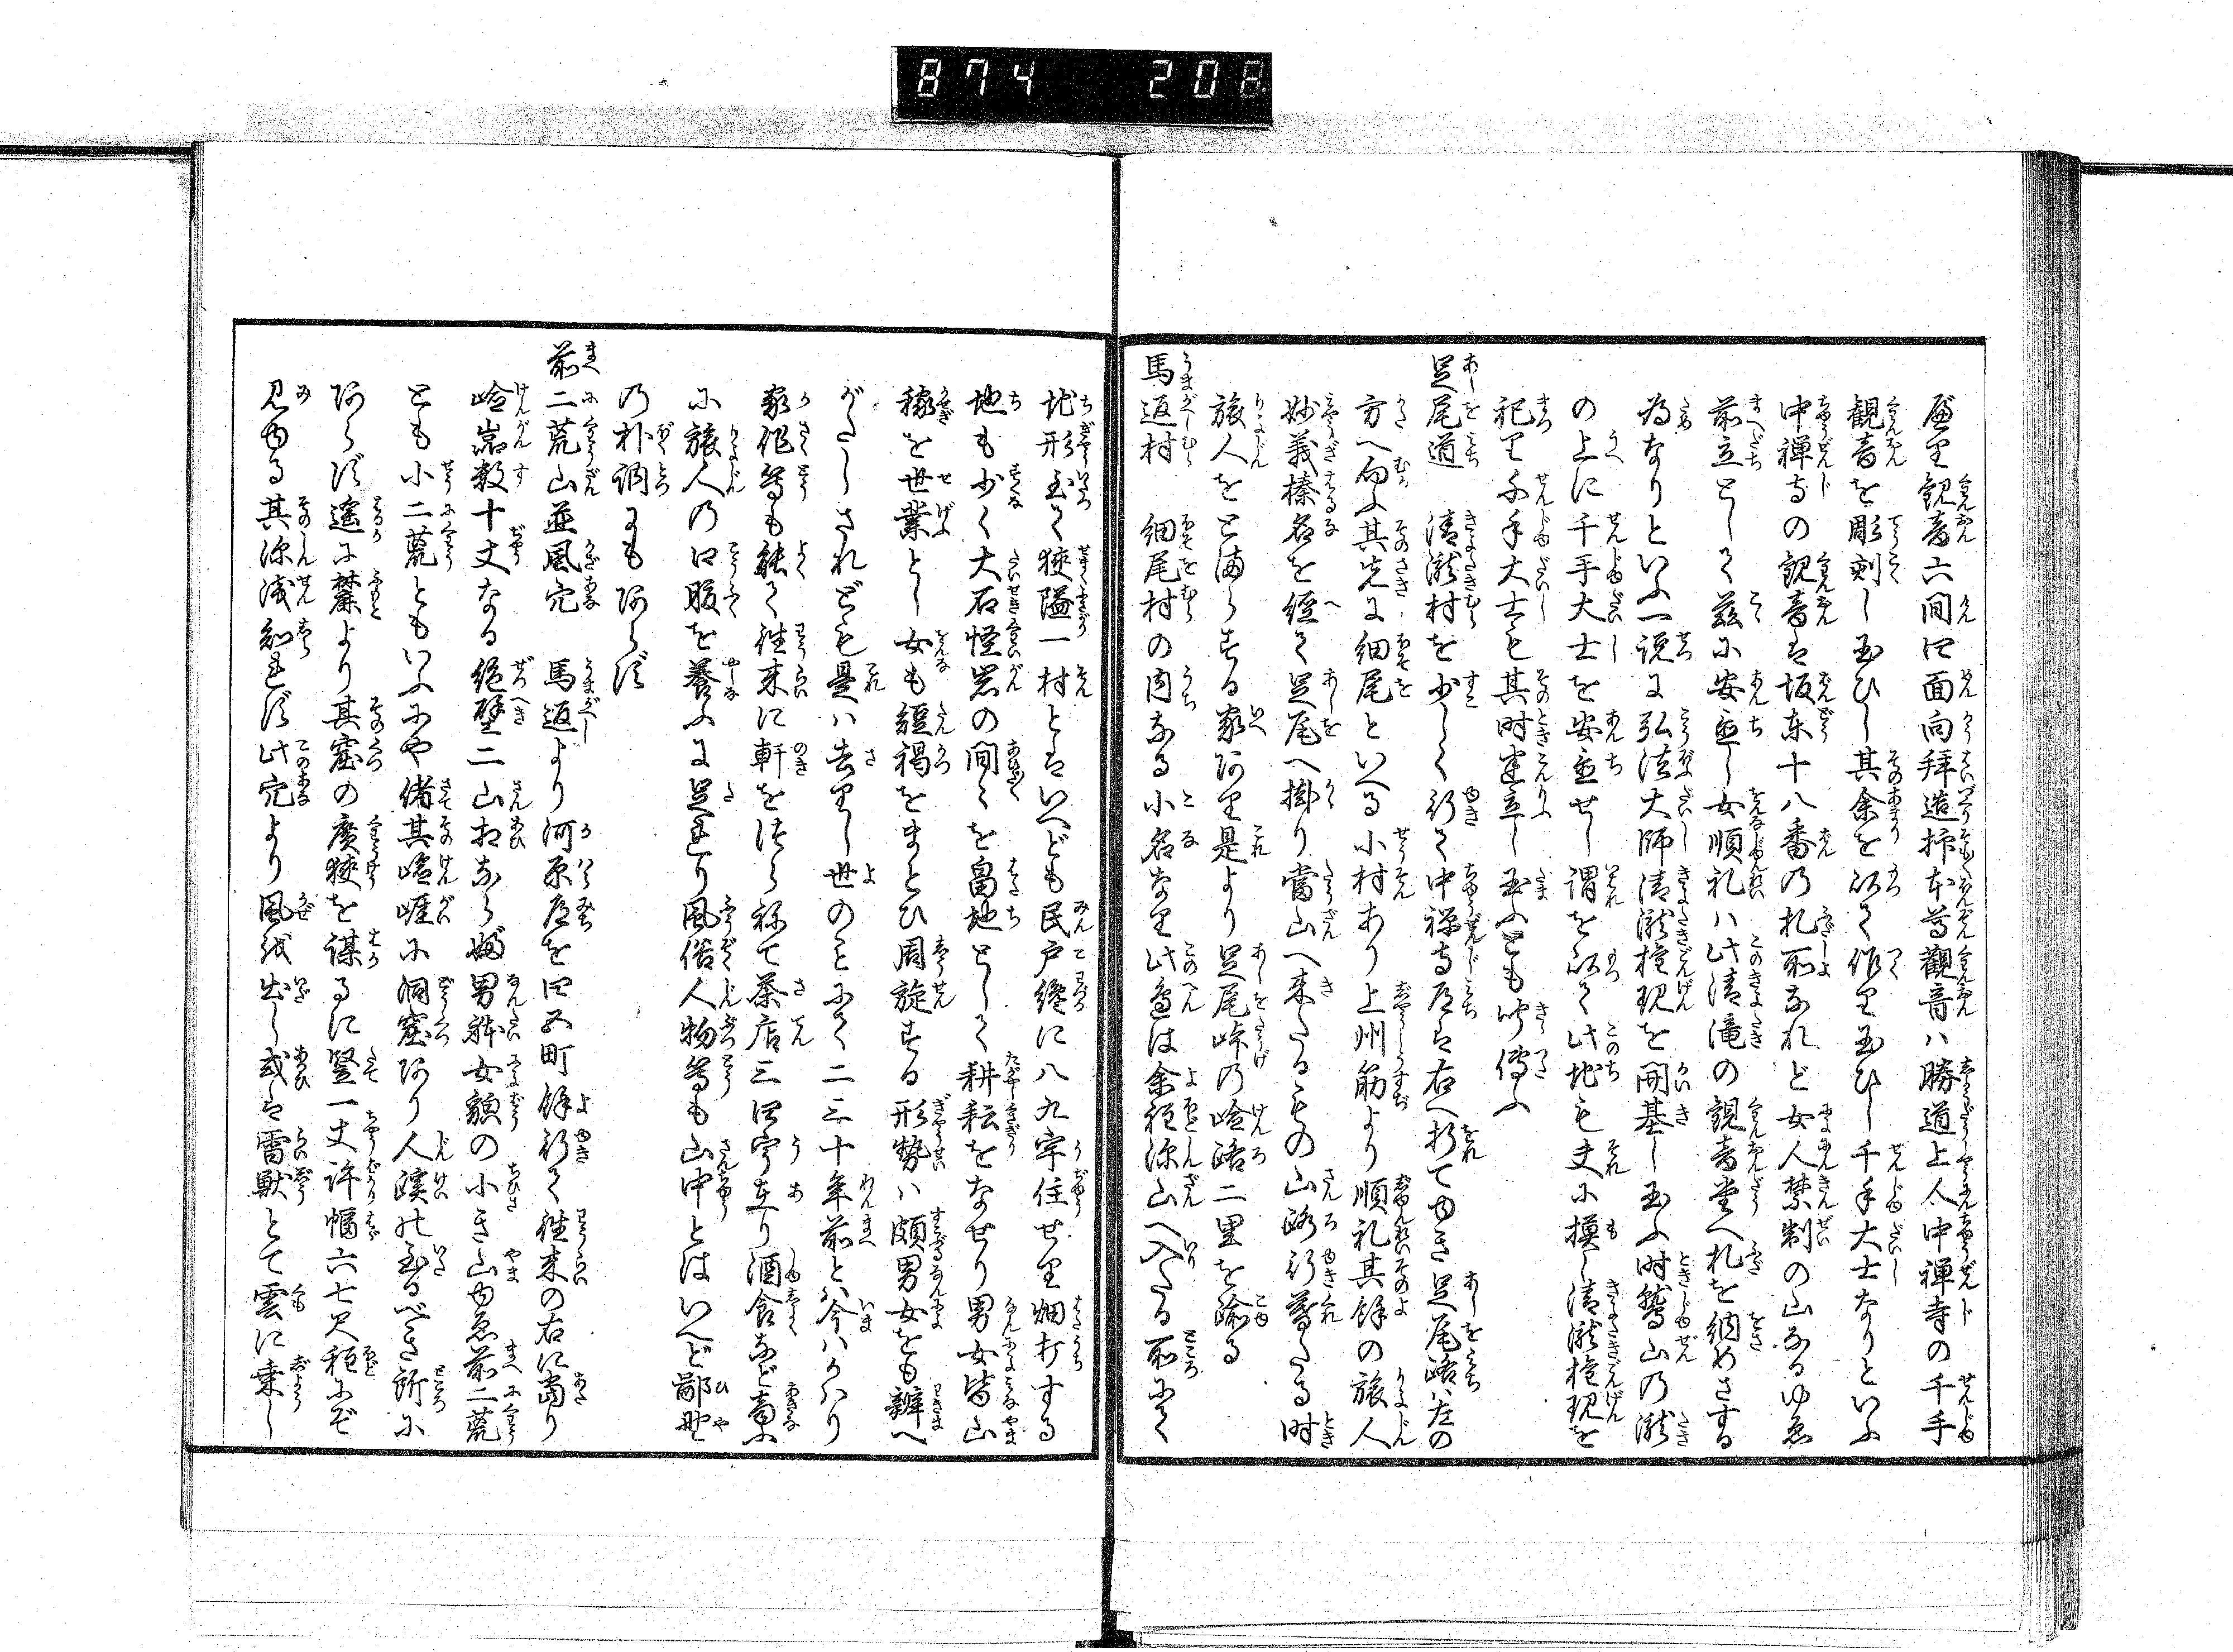 874 208
屋里観音六間四面向拝造柿本尊觀音ハ勝道上人中禅寺の千手
観音を彫剋し玉ひし其余を以て作里玉ひし千手大士なりといふ
中禅寺の観音は坂東十八番の札所なれど女人禁制の山なるゆゑ
前立として茲に安置し女順礼ハ此清滝の観音堂へ札を納めさする
為なりといふ一説に弘法大師清瀧権現を開基し玉ふ時鷲山の瀧
の上に千手大士を安置せし謂を以て此地も夫に摸し清瀧権現を
祀里千手大士も其時建立し玉ふとも聞傳ふ
足尾道 清瀧村を少しく行て中禅寺道は右へ折てゆき足尾路ハ左の
方へ向ふ其先に細尾といへる小村あり上州筋より順礼其餘の旅人
妙義榛名を經て足尾へ掛り當山へ来たるもの山路行暮たる時
旅人をとまらする家あり是より足尾峠の嶮路二里を踰る
馬返村 細尾村の内なる小名な里此邉は余程深山へ入たる所にて
地形至て狭隘一村とはいへども民戸纔に八九宇住せ里畑打する
地も少く大石怪岩の間〱を畠地として耕耘をなせり男女皆山
稼を世業とし女も短褐をまとひ周旋する形勢ハ頗男女をも辧へ
がたしされども是ハ去里し世のことにて二三十年前とハ今ハかハり
家作等も能て往来に軒をつらねて茶店三四宇あり酒食など賣ふ
に旅人の口腹を養ふに足れり風俗人物等も山中とはいへど鄙野
の朴訥にもあらず
前二荒山並風穴 馬返より河原道を四五町餘行て往来の右に當り
嶮嵓数十丈なる絶壁二山相ならぶ男躰女貌の小き山ゆゑ前二荒
とも小二荒ともいふにや偖其嶮崖に洞窟あり人蹊の至るべき所に
あらず遙に麓より其窟の廣狭を謀るに竪一丈許幅六七尺程にぞ
見ゆる其深浅知れず此穴より風を出し或は雷獣とて雲に乗し